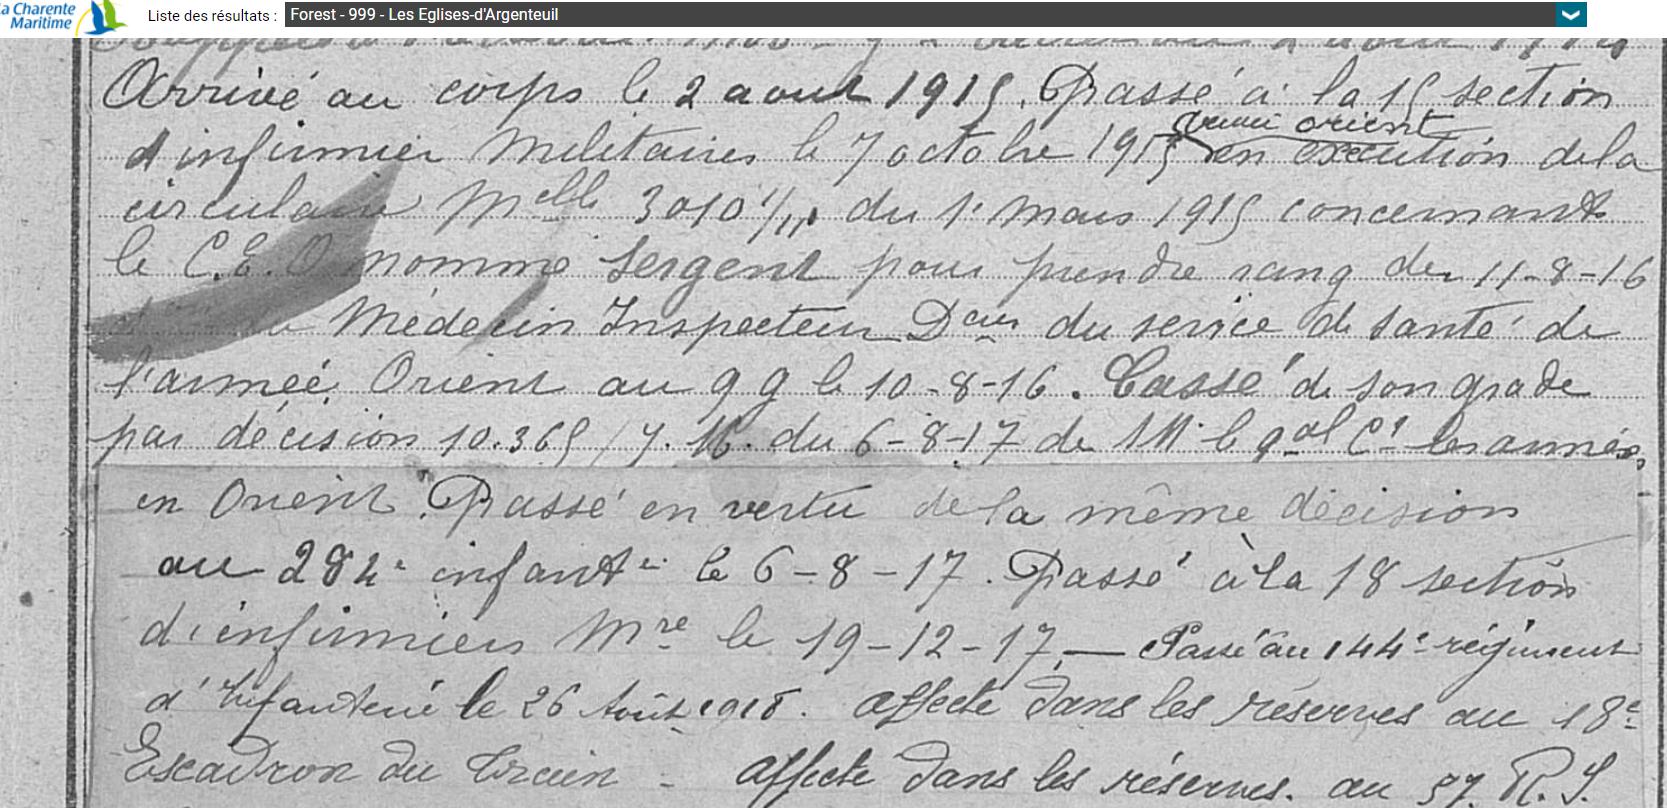 la Charente
Maritime
Liste des résultats : Forest - 999 - Les Eglises-d'Argenteuil
Arrivé au corps le 2 aout 1915. Passé à la 15 section
armée orient
d'infirmier Militaires le 7 octobre 1915 en exécution de la
circulaire Melle 3010 1/11 du 1r mars 1915 concernant
le C.E.O nommé Sergent pour prendre rang du 11-8-16
Médecin Inspecteur Deur du service de santé de
l'armée Orient au q g le 10-8-16. Cassé de son grade
par décision 10.365 / 7. 16. du 6-8-17 de Mr le gal Ct les armées
en Orient. Passé en vertu de la même décision
au 284e infantie le 6-8-17. Passé à la 18 section
d'infirmiers Mre le 19-12-17. — Passé au 144e régiment
d'Infanterie le 26 Août 1918. affecté dans les réserves au 18e
Escadron du Train - affecté dans les réserves. au 57 R.I.